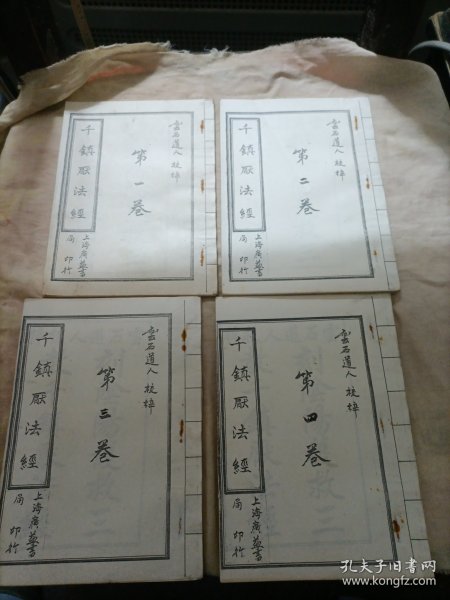 石道人 校梓
第一卷
千鎮厭法經
上海廣書
局印行
石道人 校梓
第二卷
千鎮厭法經
上海廣書
局印行
石道人 校梓
第三卷
千鎮厭法經
上海廣書
局印行
石道人 校梓
第四卷
千鎮厭法經
上海廣書
局印行
孔夫子旧书网
www.kongfz.com